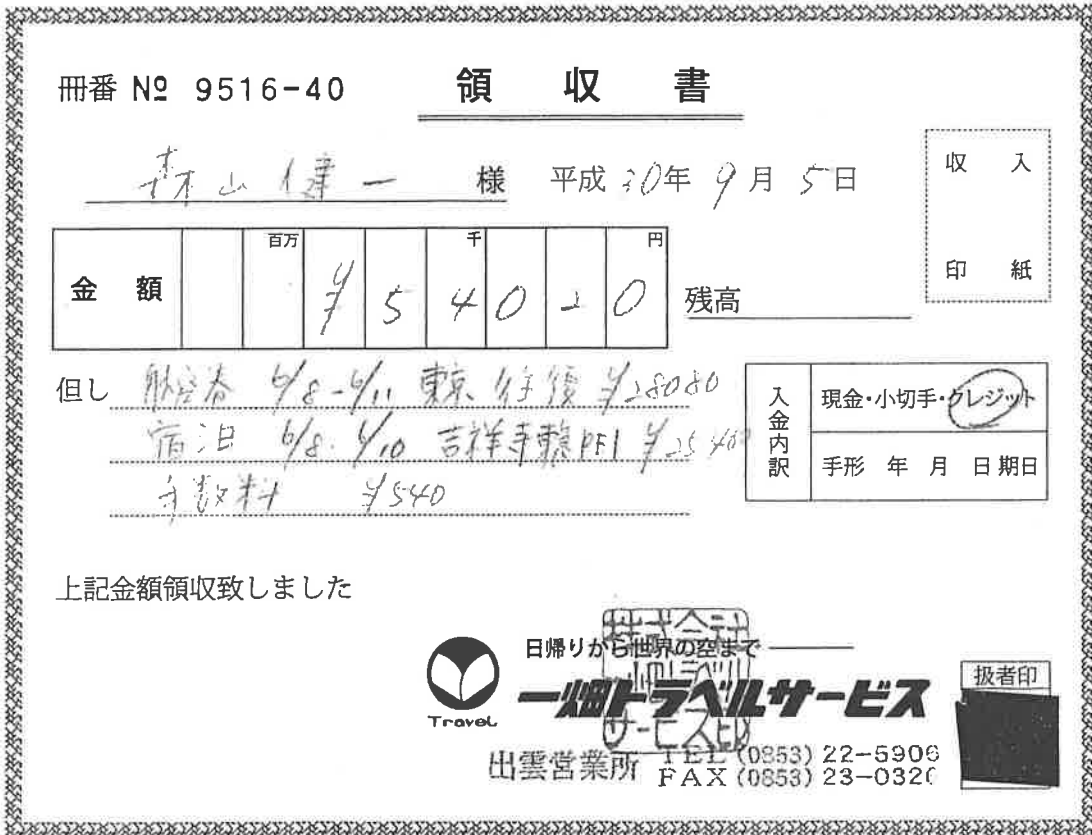 冊番 № 9516-40 領収書
森山健一 様 平成30年9月5日
収入
印紙
金額 百万 千 円 ¥54020
残高
但し 航空券 6/8-6/11 東京 往復 ¥28080
宿泊 6/8. 6/10 吉祥寺東急REI ¥25400
手数料 ¥540
入金内訳
現金・小切手・クレジット
手形 年 月 日 期日
上記金額領収致しました
株式会社
日帰りから世界の空まで
Travel
一畑トラベルサービス
サービス印
扱者印
出雲営業所 TEL (0853) 22-5906
FAX (0853) 23-0320